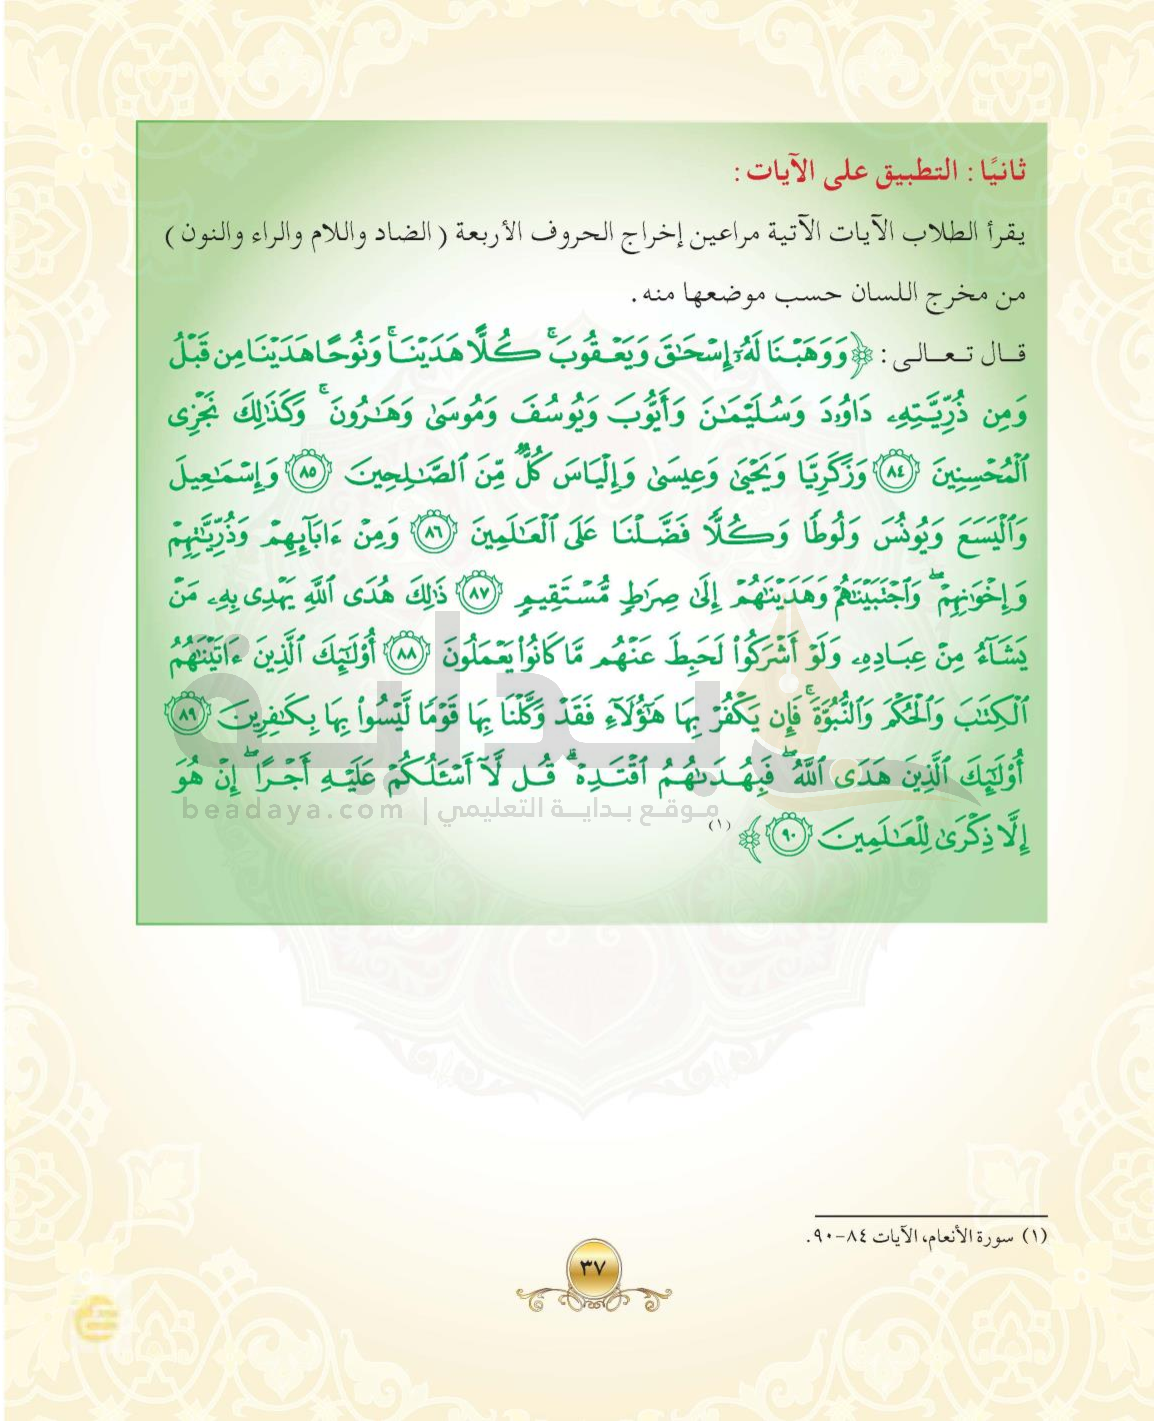 ثانيًا : التطبيق على الآيات :
يقرأ الطلاب الآيات الآتية مراعين إخراج الحروف الأربعة ( الضاد واللام والراء والنون )
من مخرج اللسان حسب موضعها منه .
قـال تـعـالـى : ﴿ وَوَهَبْنَا لَهُۥٓ إِسْحَٰقَ وَيَعْقُوبَ ۚ كُلًّا هَدَيْنَا ۚ وَنُوحًا هَدَيْنَا مِن قَبْلُ
وَمِن ذُرِّيَّتِهِۦ دَاوُۥدَ وَسُلَيْمَٰنَ وَأَيُّوبَ وَيُوسُفَ وَمُوسَىٰ وَهَٰرُونَ ۚ وَكَذَٰلِكَ نَجْزِى
ٱلْمُحْسِنِينَ ٨٤ وَزَكَرِيَّا وَيَحْيَىٰ وَعِيسَىٰ وَإِلْيَاسَ كُلٌّ مِّنَ ٱلصَّٰلِحِينَ ٨٥ وَإِسْمَٰعِيلَ
وَٱلْيَسَعَ وَيُونُسَ وَلُوطًا وَكُلًّا فَضَّلْنَا عَلَى ٱلْعَٰلَمِينَ ٨٦ وَمِنْ ءَابَآئِهِمْ وَذُرِّيَّٰتِهِمْ
وَإِخْوَٰنِهِمْ ۖ وَٱجْتَبَيْنَٰهُمْ وَهَدَيْنَٰهُمْ إِلَىٰ صِرَٰطٍ مُّسْتَقِيمٍ ٨٧ ذَٰلِكَ هُدَى ٱللَّهِ يَهْدِى بِهِۦ مَن
يَشَآءُ مِنْ عِبَادِهِۦ وَلَوْ أَشْرَكُوا۟ لَحَبِطَ عَنْهُم مَّا كَانُوا۟ يَعْمَلُونَ ٨٨ أُو۟لَٰٓئِكَ ٱلَّذِينَ ءَاتَيْنَٰهُمُ
ٱلْكِتَٰبَ وَٱلْحُكْمَ وَٱلنُّبُوَّةَ ۚ فَإِن يَكْفُرْ بِهَا هَٰٓؤُلَآءِ فَقَدْ وَكَّلْنَا بِهَا قَوْمًا لَّيْسُوا۟ بِهَا بِكَٰفِرِينَ ٨٩
أُو۟لَٰٓئِكَ ٱلَّذِينَ هَدَى ٱللَّهُ ۖ فَبِهُدَىٰهُمُ ٱقْتَدِهْ ۗ قُل لَّآ أَسْـَٔلُكُمْ عَلَيْهِ أَجْرًا ۖ إِنْ هُوَ
إِلَّا ذِكْرَىٰ لِلْعَٰلَمِينَ ٩٠ ﴾ (١)
بداية
موقع بداية التعليمي | beadaya.com
(١) سورة الأنعام، الآيات ٨٤-٩٠.
٣٧